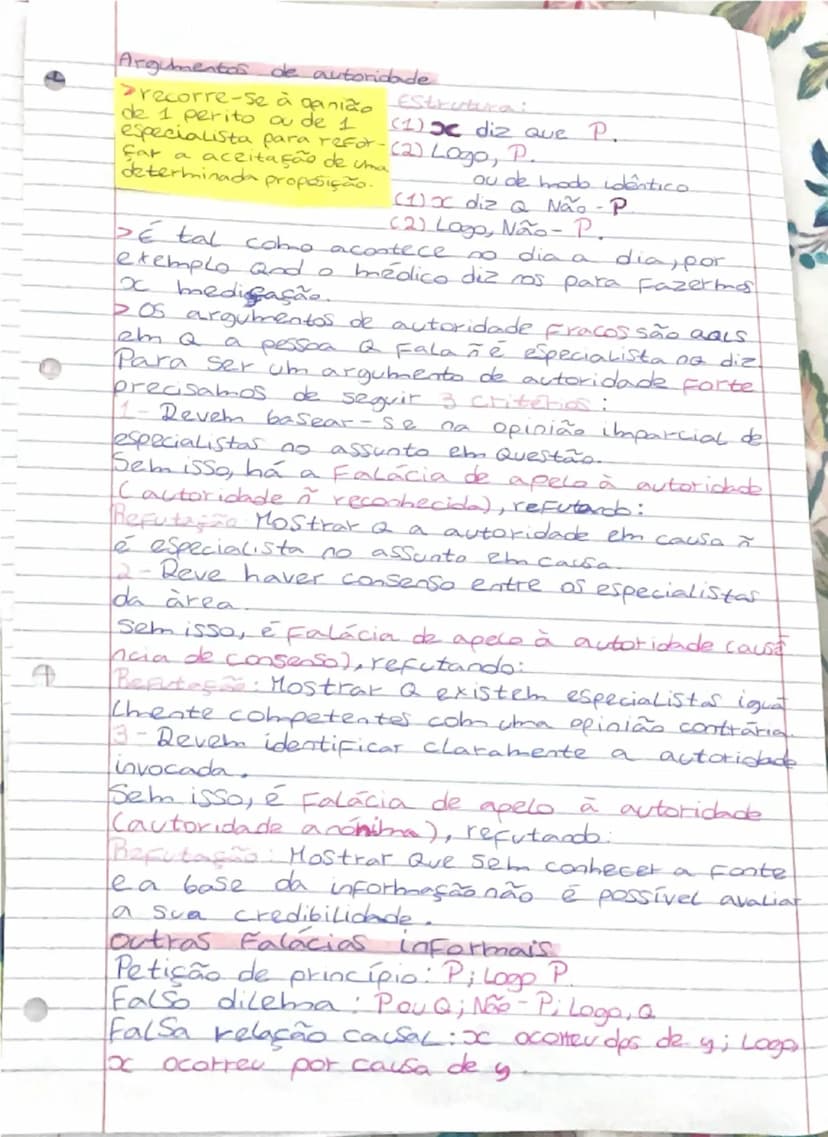 Argumentos de autoridade
>recorre-se à opinião
de 1 perito ou de 1
especialista para refor-
çar a aceitação de uma
determinada proposição.
Estrutura:
(1) x diz que P.
(2) Logo, P.
ou de modo idêntico
(1) x diz Q Não-P
(2) Logo, Não-P.
>É tal como acontece no dia a dia, por
exemplo qnd o médico diz nos para fazermos
x medicação.
>Os argumentos de autoridade fracos são aqls
em Q a pessoa Q fala ñ é especialista no q diz.
Para ser um argumento de autoridade forte
precisamos de seguir 3 critérios:
1- Devem basear-se na opinião imparcial de
especialistas no assunto em questão.
Sem isso, há a Falácia de apelo à autoridade
(autoridade ñ reconhecida), refutando:
Refutação Mostrar Q a autoridade em causa ñ
é especialista no assunto em causa.
2- Deve haver consenso entre os especialistas
da àrea.
Sem isso, é falácia de apelo à autoridade (ausê
ncia de consenso), refutando:
Refutação: Mostrar Q existem especialistas igua
lmente competentes com uma opinião contrária.
3- Devem identificar claramente a autoridade
invocada.
Sem isso, é Falácia de apelo à autoridade
(autoridade anónima), refutando:
Refutação: Mostrar que sem conhecer a fonte
e a base da informação não é possível avaliar
a sua credibilidade.
Outras Falácias informais
Petição de princípio: P; Logo P.
Falso dilema: P ou Q; Não-P; Logo, Q
Falsa relação causal: x ocorreu dps de y; Logo
x ocorreu por causa de y.